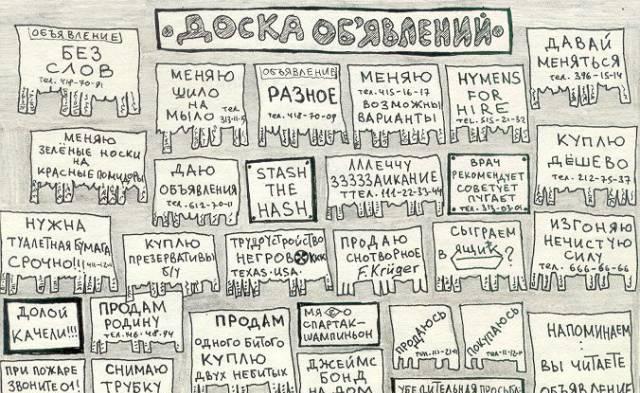 ДОСКА ОБЪЯВЛЕНИЙ
ОБЪЯВЛЕНИЕ
БЕЗ
СЛОВ
ТЕЛ. 418-70-91
МЕНЯЮ
ШИЛО
НА
МЫЛО
ТЕЛ
313-11-5
ОБЪЯВЛЕНИЕ
РАЗНОЕ
ТЕЛ. 418-70-09
МЕНЯЮ
ТЕЛ. 415-16-17
ВОЗМОЖНЫ
ВАРИАНТЫ
HYMENS
FOR
HIRE
TEL. 515-21-32
ДАВАЙ
МЕНЯТЬСЯ
ТЕЛ. 396-15-14
МЕНЯЮ
ЗЕЛЁНЫЕ НОСКИ
НА
КРАСНЫЕ ПОМИДОРЫ
ДАЮ
ОБЪЯВЛЕНИЯ
ТЕЛ. 612-70-11
STASH
THE
HASH
ЛЛЛЕЧЧУ
ЗЗЗЗЗАИКАНИЕ
ТТЕЛ. 111-22-33-44
ВРАЧ
РЕКОМЕНДУЕТ
СОВЕТУЕТ
ПУГАЕТ
ТЕЛ. 313-03-01
КУПЛЮ
ДЁШЕВО
ТЕЛ. 212-75-37
НУЖНА
ТУАЛЕТНАЯ БУМАГА
СРОЧНО!!!
КУПЛЮ
ПРЕЗЕРВАТИВЫ
Б/У
ТРУДУСТРОЙСТВО
НЕГРОВ
KKK
TEXAS-USA.
ПРОДАЮ
СНОТВОРНОЕ
F. Krüger
СЫГРАЕМ
В ЯЩИК ?
ИЗГОНЯЮ
НЕЧИСТУЮ
СИЛУ
ТЕЛ. 666-66-66
ДОЛОЙ
КАЧЕЛИ!!!
ПРОДАМ
РОДИНУ
ТЕЛ. 416-48-94
ПРОДАМ
ОДНОГО БИТОГО
КУПЛЮ
ДВУХ НЕБИТЫХ
СПАРТАК-
ШАМПИНЬОН
ПРОДАЮСЬ
ПОКУПАЮСЬ
НАПОМИНАЕМ:
ВЫ ЧИТАЕТЕ
ОБЪЯВЛЕНИЕ
ПРИ ПОЖАРЕ
ЗВОНИТЕ 01!
СНИМАЮ
ТРУБКУ
ДЖЕЙМС
БОНД
НА ДОМ
УБЕДИТЕЛЬНАЯ ПРОСЬБА